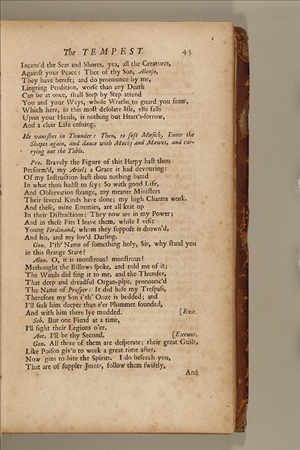 The TEMPEST. 43
Incens'd the Seas and Shores, yea, all the Creatures,
Against your Peace: Thee of thy Son, Alonso,
They have bereft; and do pronounce by me,
Lingring Perdition, worse than any Death
Can be at once, shall Step by Step attend
You and your Ways, whose Wraths to guard you from,
Which here, in this most desolate Isle, else falls
Upon your Heads, is nothing but Heart's-sorrow,
And a clear Life ensuing.
He vanishes in Thunder: Then, to soft Musick, Enter the
Shapes again, and dance with Mocks and Mowes, and car-
rying out the Table.
Pro. Bravely the Figure of this Harpy hast thou
Perform'd, my Ariel; a Grace it had devouring:
Of my Instruction hast thou nothing bated
In what thou hadst to say: So with good Life,
And Observation strange, my meaner Ministers
Their several Kinds have done; my high Charms work,
And these, mine Enemies, are all knit up
In their Distractions: They now are in my Power;
And in these Fits I leave them, while I visit
Young Ferdinand, whom they suppose is drown'd,
And his, and my lov'd Darling.
Gon. I'th' Name of something holy, Sir, why stand you
in this strange Stare?
Alon. O, it is monstrous! monstrous!
Methought the Billows spoke, and told me of it;
The Winds did sing it to me, and the Thunder,
That deep and dreadful Organ-pipe, pronounc'd
The Name of Prosper: It did base my Trespass,
Therefore my Son i'th' Ooze is bedded; and
I'll seek him deeper than e'er Plummet sounded,
And with him there lye mudded. [Exit.
Seb. But one Fiend at a time,
I'll fight their Legions o'er.
Ant. I'll be thy Second. [Exeunt.
Gon. All three of them are desperate; their great Guilt,
Like Poison giv'n to work a great time after,
Now 'gins to bite the Spirits. I do beseech you,
That are of suppler Joints, follow them swiftly,
And